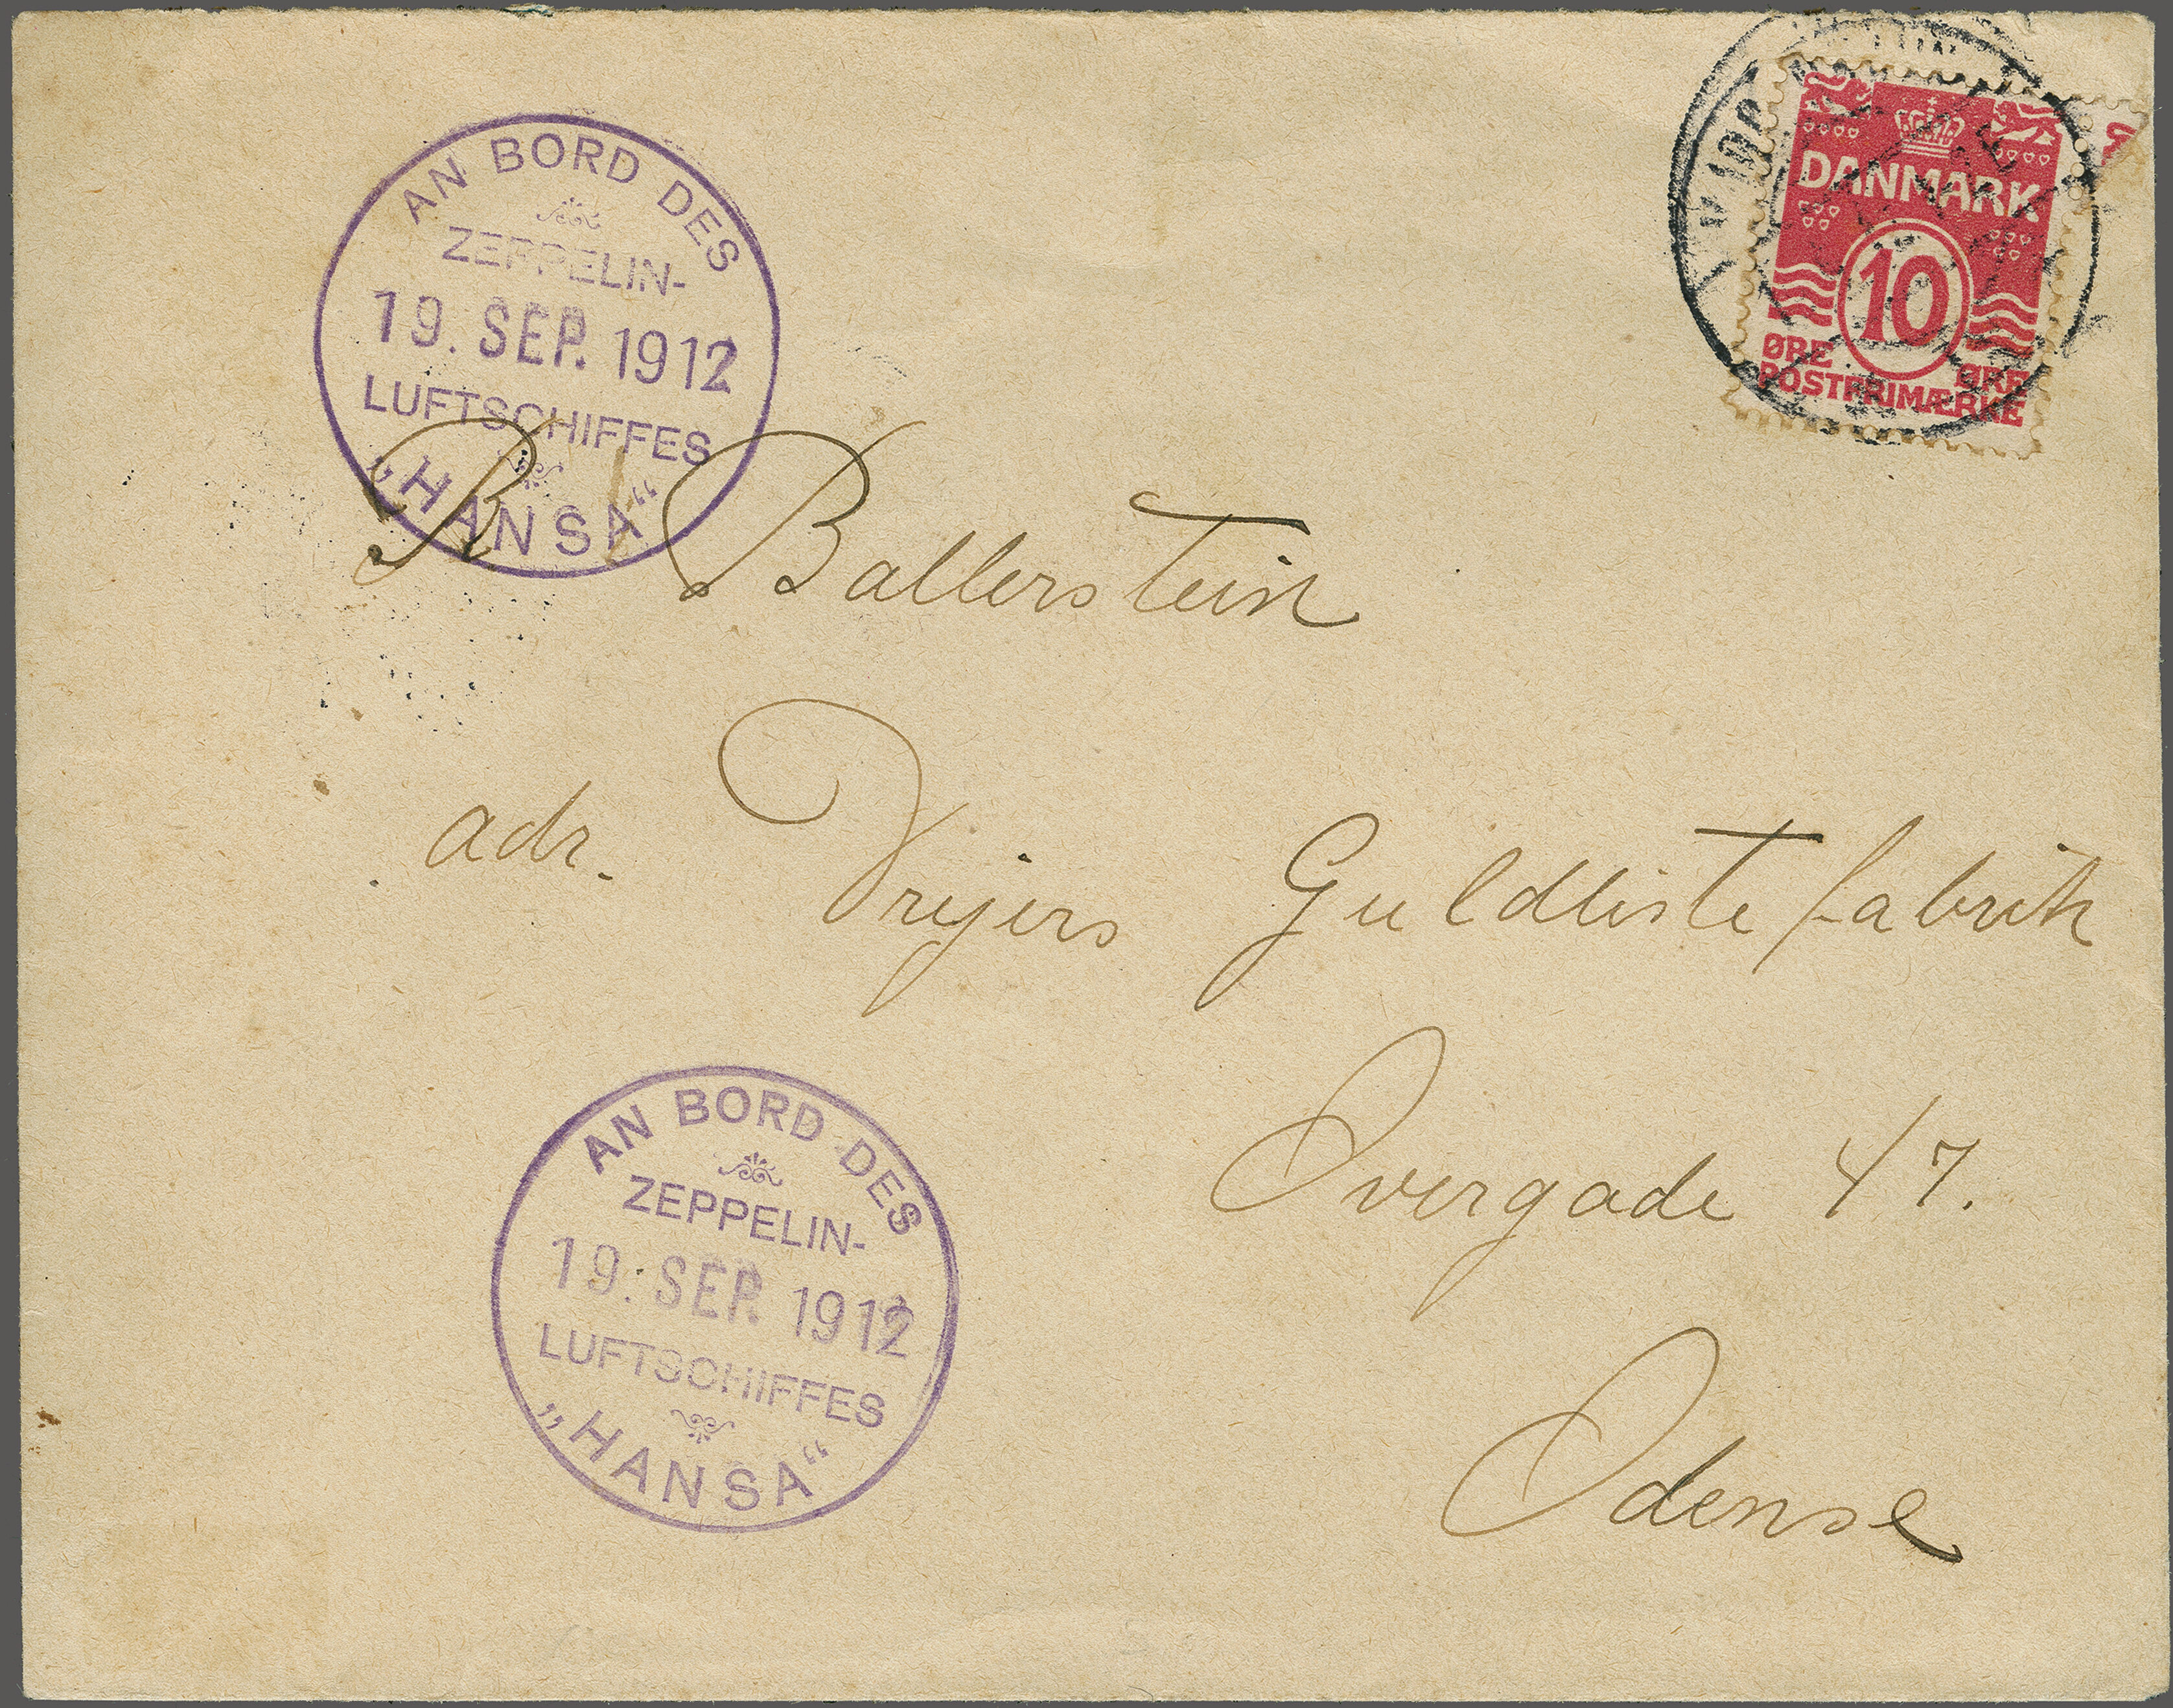 AN BORD DES
ZEPPELIN-
19. SEP. 1912
LUFTSCHIFFES
„HANSA“
DANMARK
10
ØRE ØRE
POSTFRIMÆRKE
R Ballerstein
adr. Dryers Guldliste fabrik
Overgade 47.
Odense
AN BORD DES
ZEPPELIN-
19. SEP. 1912
LUFTSCHIFFES
„HANSA“